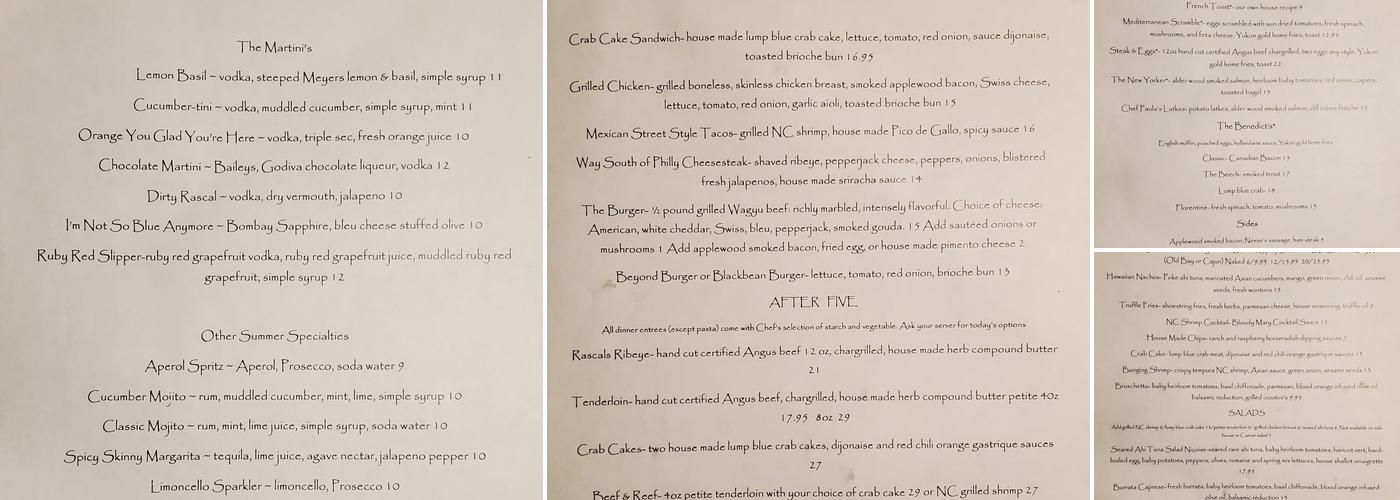 The Martini's
Lemon Basil ~ vodka, steeped Meyers lemon & basil, simple syrup 11
Cucumber-tini ~ vodka, muddled cucumber, simple syrup, mint 11
Orange You Glad You're Here ~ vodka, triple sec, fresh orange juice 10
Chocolate Martini ~ Baileys, Godiva chocolate liqueur, vodka 12
Dirty Rascal ~ vodka, dry vermouth, jalapeno 10
I'm Not So Blue Anymore ~ Bombay Sapphire, bleu cheese stuffed olive 10
Ruby Red Slipper-ruby red grapefruit vodka, ruby red grapefruit juice, muddled ruby red
grapefruit, simple syrup 12
Other Summer Specialties
Aperol Spritz ~ Aperol, Prosecco, soda water 9
Cucumber Mojito ~ rum, muddled cucumber, mint, lime, simple syrup 10
Classic Mojito ~ rum, mint, lime juice, simple syrup, soda water 10
Spicy Skinny Margarita ~ tequila, lime juice, agave nectar, jalapeno pepper 10
Limoncello Sparkler ~ limoncello, Prosecco 10
Crab Cake Sandwich- house made lump blue crab cake, lettuce, tomato, red onion, sauce dijonaise,
toasted brioche bun 16.95
Grilled Chicken- grilled boneless, skinless chicken breast, smoked applewood bacon, Swiss cheese,
lettuce, tomato, red onion, garlic aioli, toasted brioche bun 15
Mexican Street Style Tacos- grilled NC shrimp, house made Pico de Gallo, spicy sauce 16
Way South of Philly Cheesesteak- shaved ribeye, pepperjack cheese, peppers, onions, blistered
fresh jalapenos, house made sriracha sauce 14
The Burger- ½ pound grilled Wagyu beef: richly marbled, intensely flavorful. Choice of cheese:
American, white cheddar, Swiss, bleu, pepperjack, smoked gouda. 15 Add sautéed onions or
mushrooms 1 Add applewood smoked bacon, fried egg, or house made pimento cheese 2
Beyond Burger or Blackbean Burger- lettuce, tomato, red onion, brioche bun 13
AFTER FIVE
All dinner entrees (except pasta) come with Chef's selection of starch and vegetable. Ask your server for today's options
Rascals Ribeye- hand cut certified Angus beef 12 oz, chargrilled, house made herb compound butter
21
Tenderloin- hand cut certified Angus beef, chargrilled, house made herb compound butter petite 4oz
17.95 8oz 29
Crab Cakes- two house made lump blue crab cakes, dijonaise and red chili orange gastrique sauces
27
Beef & Reef- 4oz petite tenderloin with your choice of crab cake 29 or NC grilled shrimp 27
French Toast*- our own house recipe 9
Mediterranean Scramble*- eggs scrambled with sun dried tomatoes, fresh spinach,
mushrooms, and feta cheese, Yukon gold home fries, toast 12.95
Steak & Eggs*- 12oz hand cut certified Angus beef chargrilled, two eggs any style, Yukon
gold home fries, toast 22
The New Yorker*- alder wood smoked salmon, heirloom baby tomatoes, red onion, capers,
toasted bagel 15
Chef Paula's Latkes- potato latkes, alder wood smoked salmon, dill crème fraiche 15
The Benedict's*
English muffin, poached eggs, hollandaise sauce, Yukon gold home fries
Classic- Canadian Bacon 13
The Beech- smoked trout 17
Lump blue crab- 18
Florentine- fresh spinach, tomato, mushrooms 13
Sides
Applewood smoked bacon, Neese's sausage, ham steak 5
(Old Bay or Cajun) Naked 6/9.95 12/15.95 20/25.95
Hawaiian Nachos- Poke ahi tuna, marinated Asian cucumbers, mango, green onion, chili oil, sesame
seeds, fresh wontons 15
Truffle Fries- shoestring fries, fresh herbs, parmesan cheese, house seasoning, truffle oil 9
NC Shrimp Cocktail- Bloody Mary Cocktail Sauce 12
House Made Chips- ranch and raspberry horseradish dipping sauces 7
Crab Cake- lump blue crab meat, dijonaise and red chili orange gastrique sauces 13
Banging Shrimp- crispy tempura NC shrimp, Asian sauce, green onion, sesame seeds 13
Bruschetta- baby heirloom tomatoes, basil chiffonade, parmesan, blood orange infused olive oil,
balsamic reduction, grilled crostini's 9.95
SALADS
Add grilled NC shrimp 8/lump blue crab cake 13/petite tenderloin 8/ grilled chicken breast 6/seared ahi tuna 8. Not available on side
house or Caesar salad 5
Seared Ahi Tuna Salad Niçoise-seared rare ahi tuna, baby heirloom tomatoes, haricot vert, hard-
boiled egg, baby potatoes, peppers, olives, romaine and spring mix lettuces, house shallot vinaigrette
17.95
Burrata Caprese- fresh burrata, baby heirloom tomatoes, basil chiffonade, blood orange infused
olive oil, balsamic reduction 13